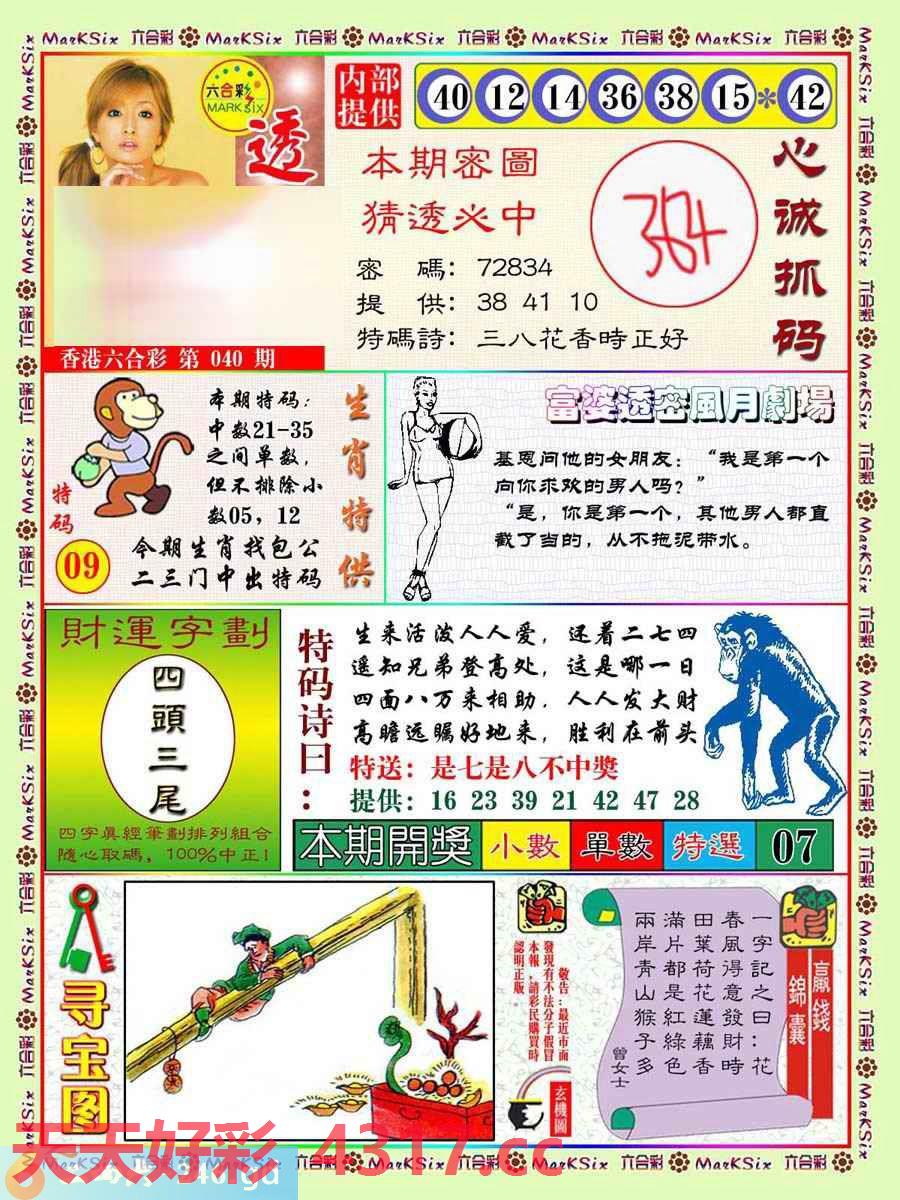 MarKSix 六合彩 MarKSix 六合彩 MarKSix 六合彩 MarKSix 六合彩 MarKSix 六合彩
六合彩
MARK six
透
内部
提供
40 12 14 36 38 15 * 42
本期密圖
猜透必中
密 碼: 72834
提 供: 38 41 10
特碼詩: 三八花香時正好
384
心诚抓码
香港六合彩 第 040 期
特码
09
本期特码:
中数21-35
之间单数,
但不排除小
数05, 12
今期生肖找包公
二三门中出特码
生肖特供
富婆透密風月劇場
基恩问他的女朋友: “我是第一个
向你求欢的男人吗? ”
“是, 你是第一个, 其他男人都直
截了当的, 从不拖泥带水。
財運字劃
四頭三尾
四字真經筆劃排列組合
隨心取碼, 100%中正!
特码诗曰:
生来活泼人人爱, 还着二七四
遥知兄弟登高处, 这是哪一日
四面八万来相助, 人人发大财
高瞻远瞩好地来, 胜利在前头
特送: 是七是八不中獎
提供: 16 23 39 21 42 47 28
本期開獎 小數 單數 特選 07
寻宝图
敬告:最近市面
發現有不法分子假冒
本報,請彩民購買時
認明正版。
玄機圖
一字記之曰: 花
春風得意發財時
田葉荷花蓮藕香
滿片都是紅綠色
兩岸青山猴子多
曾女士
贏錢
錦囊
天天好彩 4317.cc
MarKSix 六合彩 MarKSix 六合彩 MarKSix 六合彩